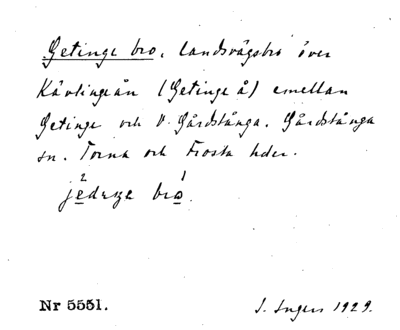 Getinge bro, landsvägsbro över
Kävlingeån (Getinge å) emellan
Getinge och V. Gårdstånga. Gårdstånga
sn. Torna och Frosta hder.
Nr 5551. I. Ingers 1929.